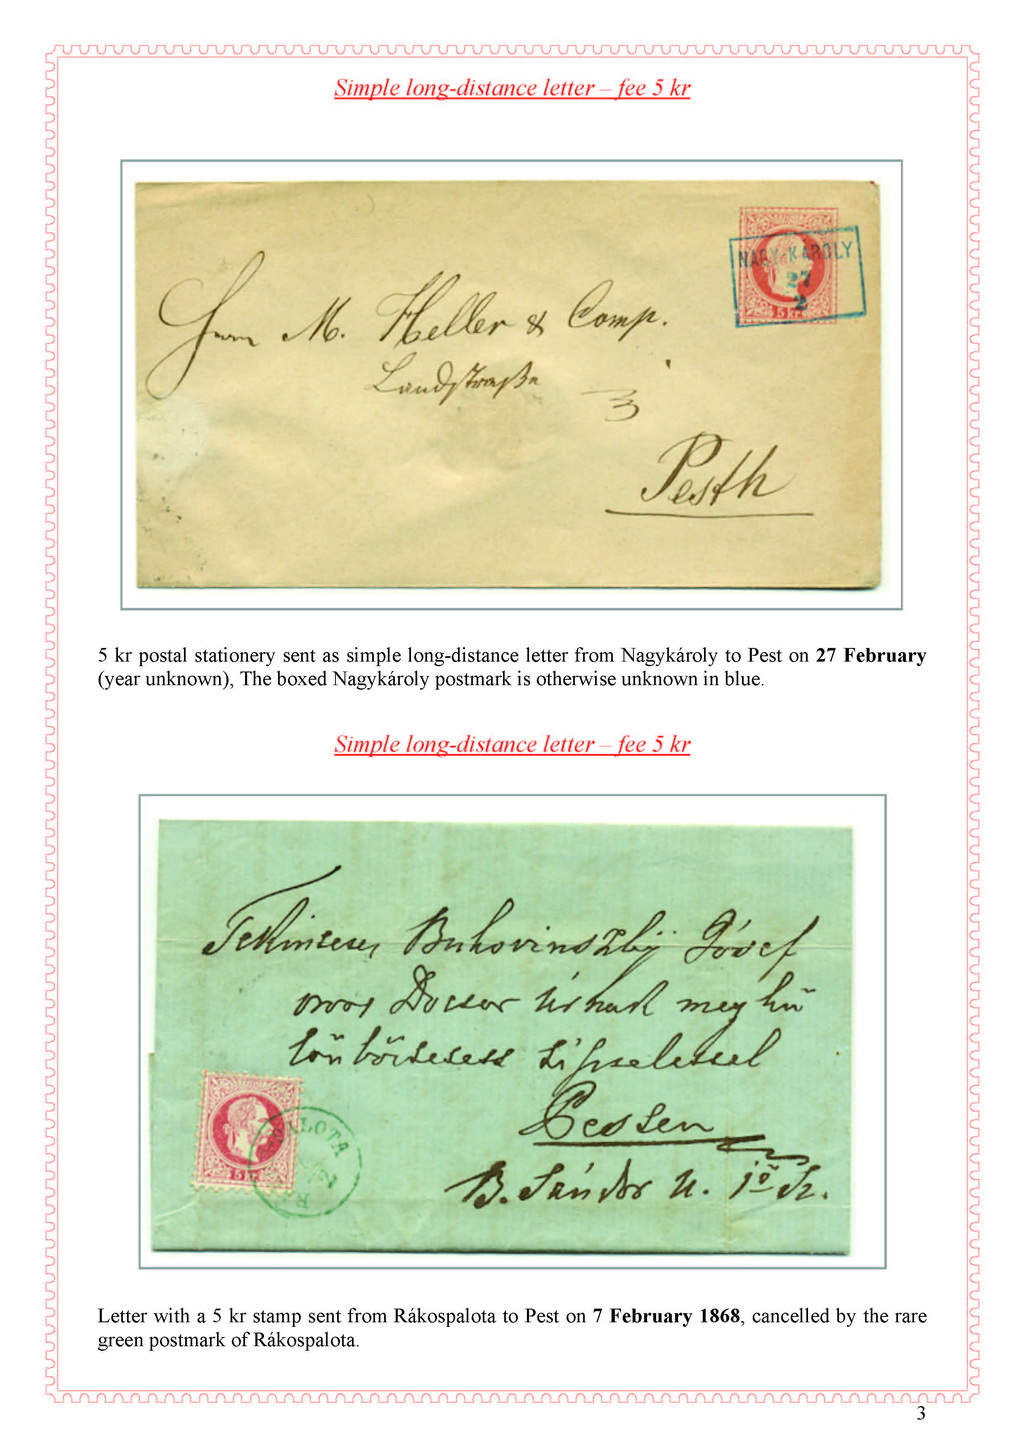 Simple long-distance letter – fee 5 kr
NAGY-KÁROLY
27
2
5 kr
Herrn M. Heller & Comp.
Landstraße
3
Pesth
5 kr postal stationery sent as simple long-distance letter from Nagykároly to Pest on 27 February
(year unknown), The boxed Nagykároly postmark is otherwise unknown in blue.
Simple long-distance letter – fee 5 kr
Tekintetes Bukovinszky József
orvos Doctor Úrnak meg kü
lönböztetett tisztelettel
Pesten
B. Sándor u. 10 sz.
5 kr
PALOTA
Letter with a 5 kr stamp sent from Rákospalota to Pest on 7 February 1868, cancelled by the rare
green postmark of Rákospalota.
3